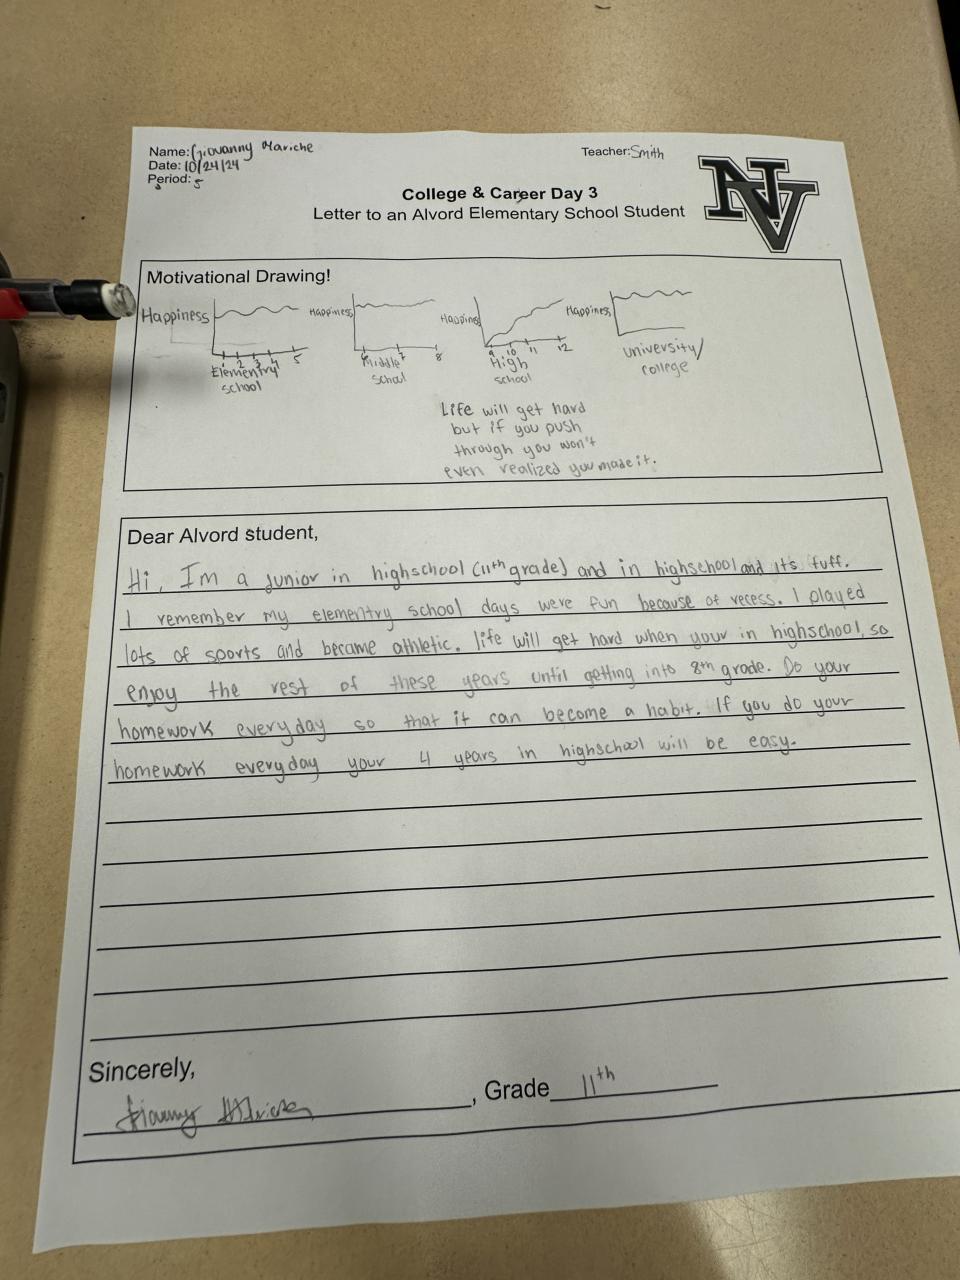 Name: Giovanny Mariche
Teacher: Smith
Date: 10/24/24
Period: 5
NV
College & Career Day 3
Letter to an Alvord Elementary School Student
Motivational Drawing!
Happiness
1 2 3 4 5
Elementry
school
Happiness
6 7 8
Middle
school
Happiness
9 10 11 12
High
school
Happiness
University/
college
Life will get hard
but if you push
through you won't
even realized you made it.
Dear Alvord student,
Hi, Im a junior in highschool (11th grade) and in highschool and its tuff.
I remember my elementry school days were fun because of recess. I played
lots of sports and became athletic. life will get hard when your in highschool, so
enjoy the rest of these years until getting into 8th grade. Do your
homework everyday so that it can become a habit. If you do your
homework everyday your 4 years in highschool will be easy.
Sincerely,
, Grade 11th